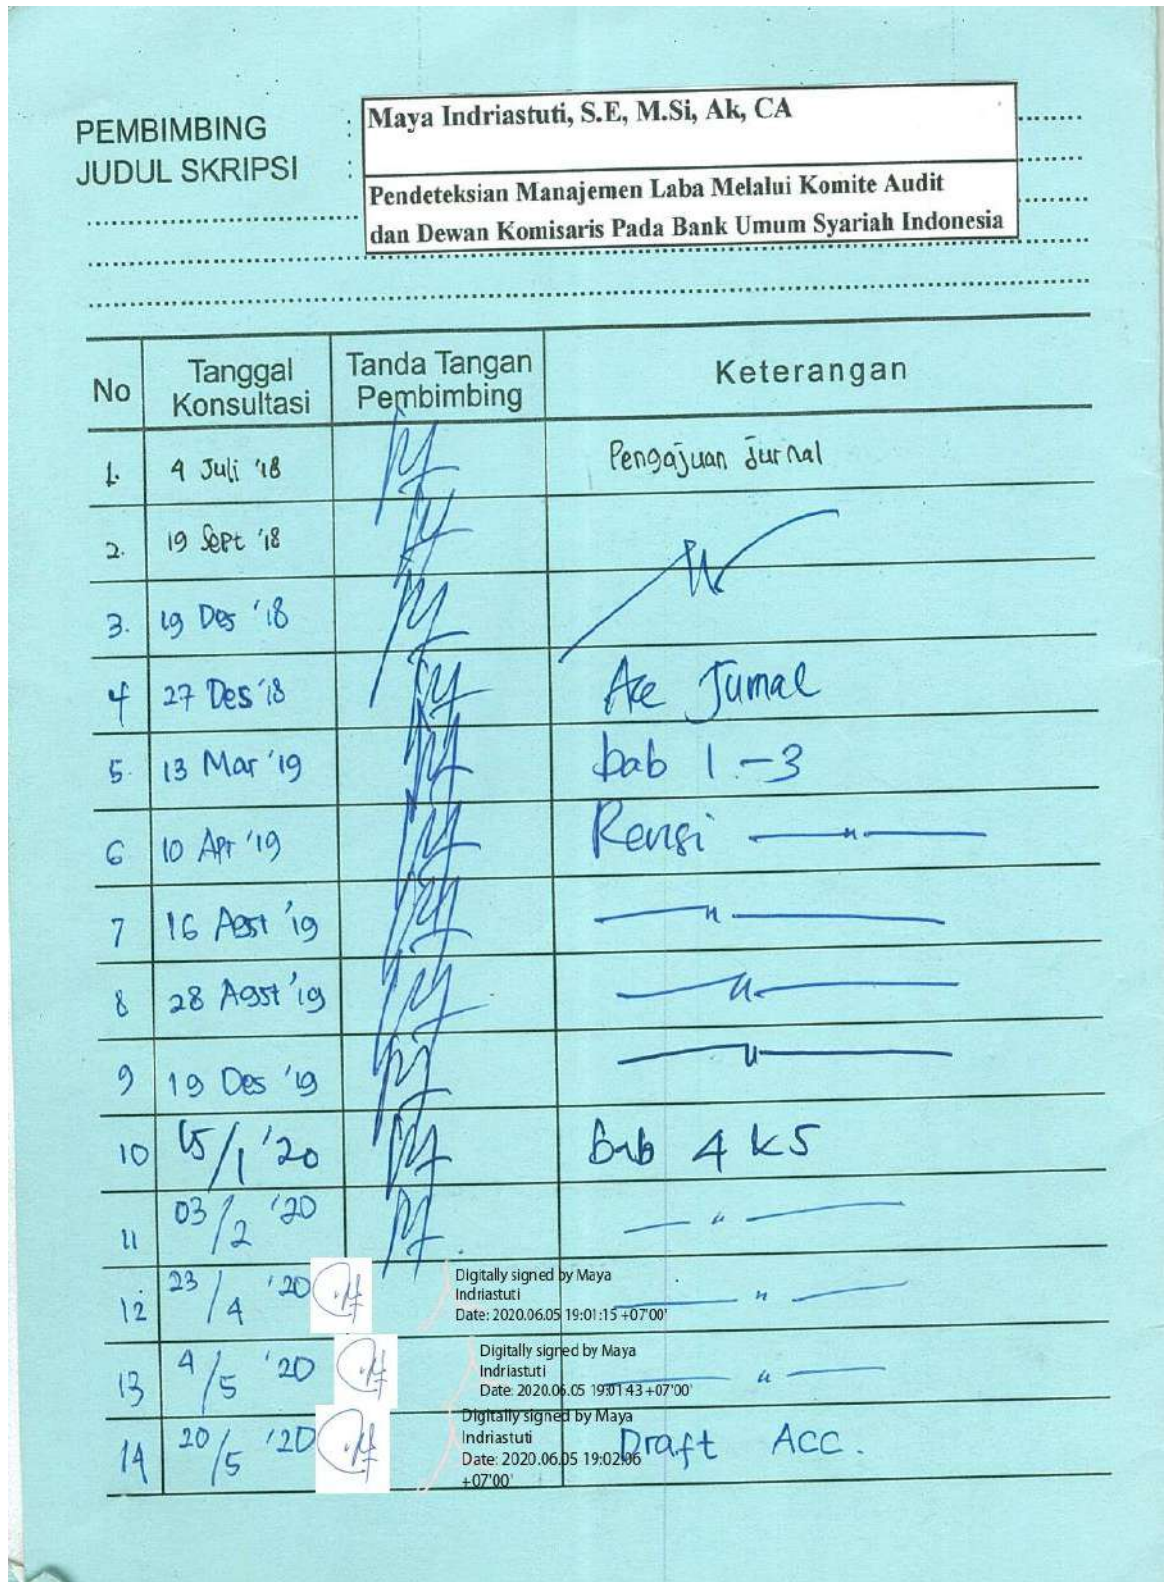 PEMBIMBING : Maya Indriastuti, S.E, M.Si, Ak, CA
JUDUL SKRIPSI : Pendeteksian Manajemen Laba Melalui Komite Audit
dan Dewan Komisaris Pada Bank Umum Syariah Indonesia
No Tanggal Konsultasi Tanda Tangan Pembimbing Keterangan
1. 4 Juli '18 Pengajuan Jurnal
2. 19 Sept '18
3. 19 Des '18
4 27 Des '18 Acc Jurnal
5. 13 Mar '19 bab 1-3
6 10 Apr '19 Revisi — " —
7 16 Agst '19 — " —
8 28 Agst '19 — " —
9 19 Des '19 — " —
10 /1 '20 bab 4 & 5
11 03/2 '20 — " —
12 23/4 '20 Digitally signed by Maya
Indriastuti
Date: 2020.06.05 19:01:15 +07'00' — " —
13 4/5 '20 Digitally signed by Maya
Indriastuti
Date: 2020.06.05 19:01:43 +07'00' — " —
14 20/5 '20 Digitally signed by Maya
Indriastuti
Date: 2020.06.05 19:02:06
+07'00' Draft ACC.